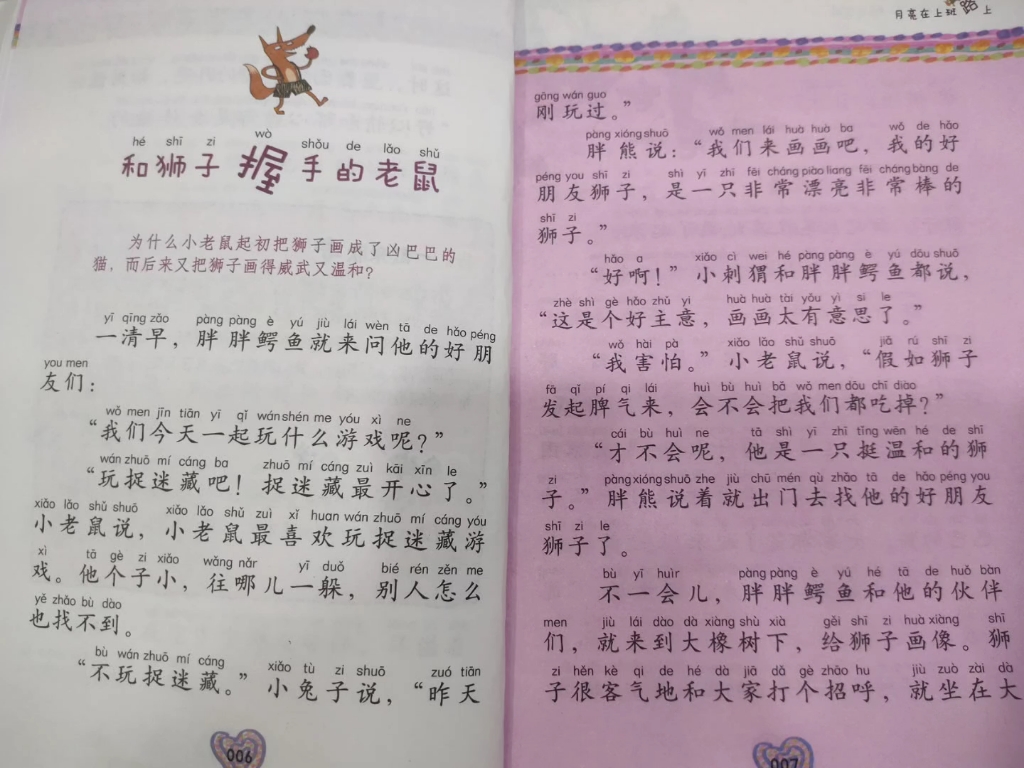 hé shī zi wò shǒu de lǎo shǔ
和狮子握手的老鼠
为什么小老鼠起初把狮子画成了凶巴巴的
猫，而后来又把狮子画得威武又温和？
yī qīng zǎo pàng pàng è yú jiù lái wèn tā de hǎo péng
一清早，胖胖鳄鱼就来问他的好朋
you men
友们：
wǒ men jīn tiān yī qǐ wán shén me yóu xì ne
“我们今天一起玩什么游戏呢？”
wán zhuō mí cáng ba zhuō mí cáng zuì kāi xīn le
“玩捉迷藏吧！捉迷藏最开心了。”
xiǎo lǎo shǔ shuō xiǎo lǎo shǔ zuì xǐ huan wán zhuō mí cáng yóu
小老鼠说，小老鼠最喜欢玩捉迷藏游
xì tā gè zi xiǎo wǎng nǎr yī duǒ bié rén zěn me
戏。他个子小，往哪儿一躲，别人怎么
yě zhǎo bù dào
也找不到。
bù wán zhuō mí cáng xiǎo tù zi shuō zuó tiān
“不玩捉迷藏。”小兔子说，“昨天
006
月亮在上班路上
gāng wán guo
刚玩过。”
pàng xióng shuō wǒ men lái huà huà ba wǒ de hǎo
胖熊说：“我们来画画吧，我的好
péng you shī zi shì yī zhī fēi cháng piào liang fēi cháng bàng de
朋友狮子，是一只非常漂亮非常棒的
shī zi
狮子。”
hǎo a xiǎo cì wei hé pàng pàng è yú dōu shuō
“好啊！”小刺猬和胖胖鳄鱼都说，
zhè shì gè hǎo zhǔ yi huà huà tài yǒu yì si le
“这是个好主意，画画太有意思了。”
wǒ hài pà xiǎo lǎo shǔ shuō jiǎ rú shī zi
“我害怕。”小老鼠说，“假如狮子
fā qǐ pí qi lái huì bù huì bǎ wǒ men dōu chī diào
发起脾气来，会不会把我们都吃掉？”
cái bù huì ne tā shì yī zhī tǐng wēn hé de shī
“才不会呢，他是一只挺温和的狮
zi pàng xióng shuō zhe jiù chū mén qù zhǎo tā de hǎo péng you
子。”胖熊说着就出门去找他的好朋友
shī zi le
狮子了。
bù yī huìr pàng pàng è yú hé tā de huǒ bàn
不一会儿，胖胖鳄鱼和他的伙伴
men jiù lái dào dà xiàng shù xià gěi shī zi huà xiàng shī
们，就来到大橡树下，给狮子画像。狮
zi hěn kè qi de hé dà jiā dǎ gè zhāo hu jiù zuò zài dà
子很客气地和大家打个招呼，就坐在大
007